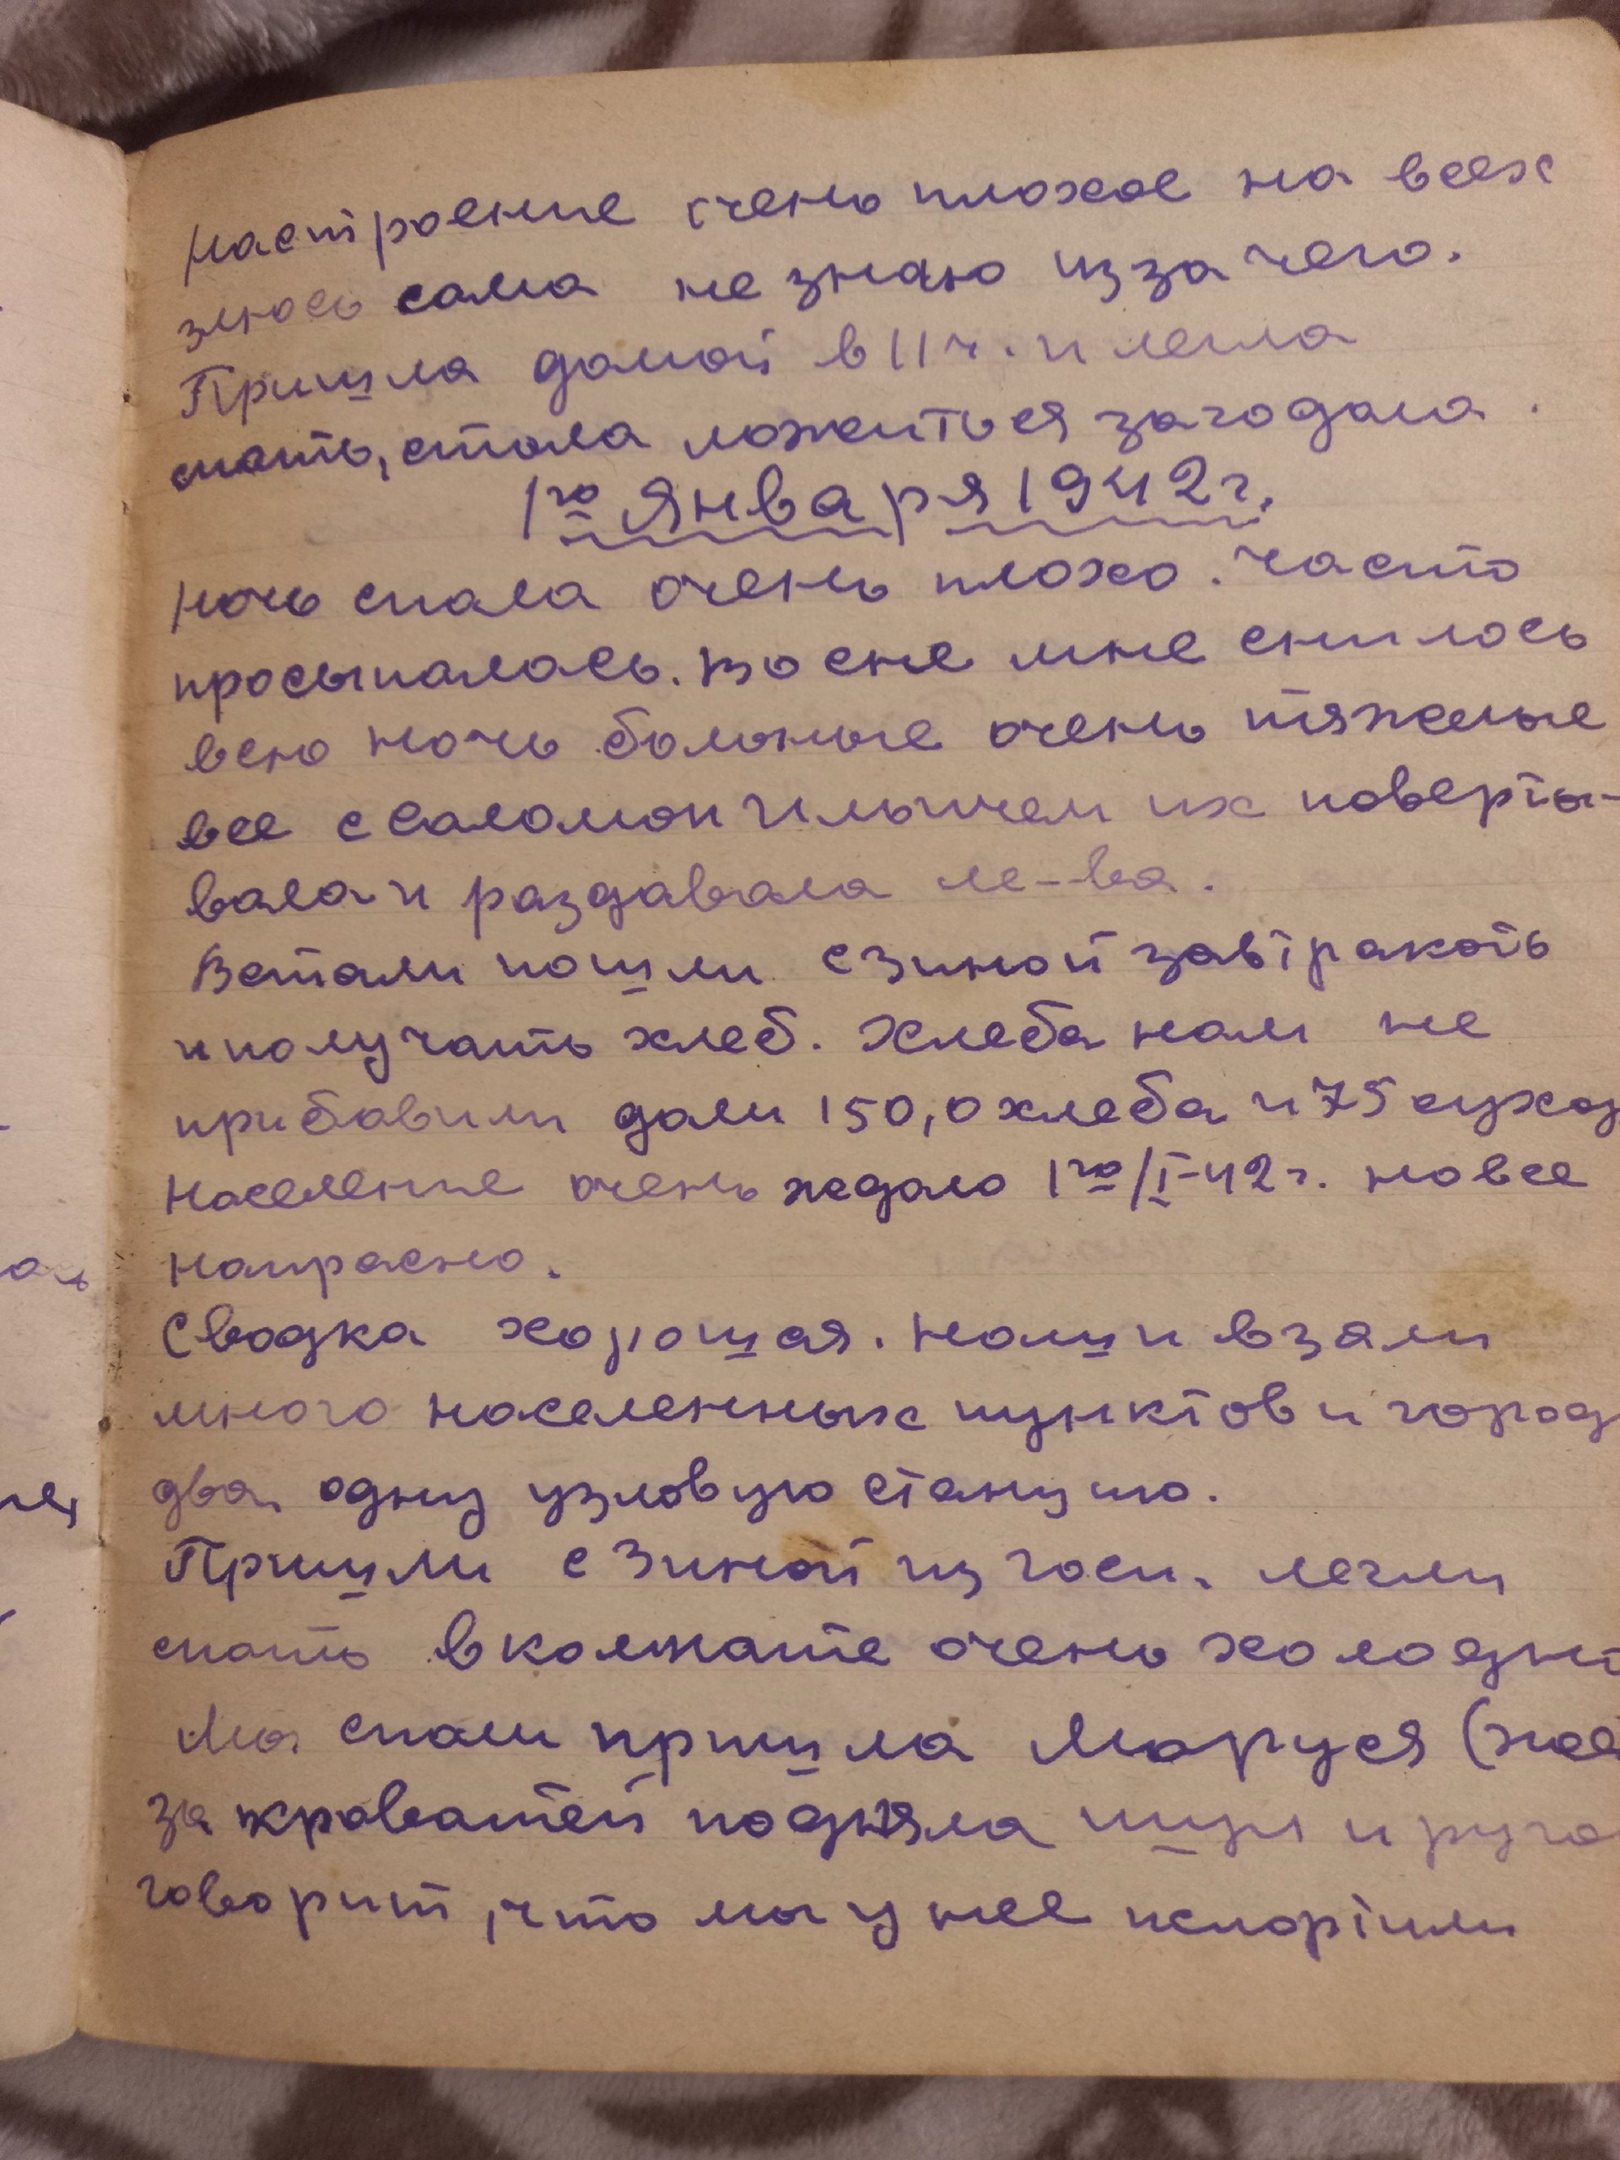 Настроение очень плохое на всех
злюсь сама не знаю из за чего.
Пришла домой в 11 ч. и легла
спать, стала ложиться загадала.
1го Января 1942 г.
Ночь спала очень плохо. Часто
просыпалась. Во сне мне снилось
всю ночь больные очень тяжелые
все с Саломон Ильичем их поверты-
вала и раздавала ле-ва.
Встали пошли с Зиной завтракать
и получать хлеб. Хлеба нам не
прибавили дали 150,0 хлеба и 75
Население очень ждало 1го/I-42 г. но все
напрасно.
Сводка хорошая. Наши взяли
много населенных пунктов и город
два, одну узловую станцию.
Пришли с Зиной из госп. легли
спать в комнате очень холодно
Мы спали пришла Маруся
за кроватей подняла шум и
говорит, что мы у нее испортили